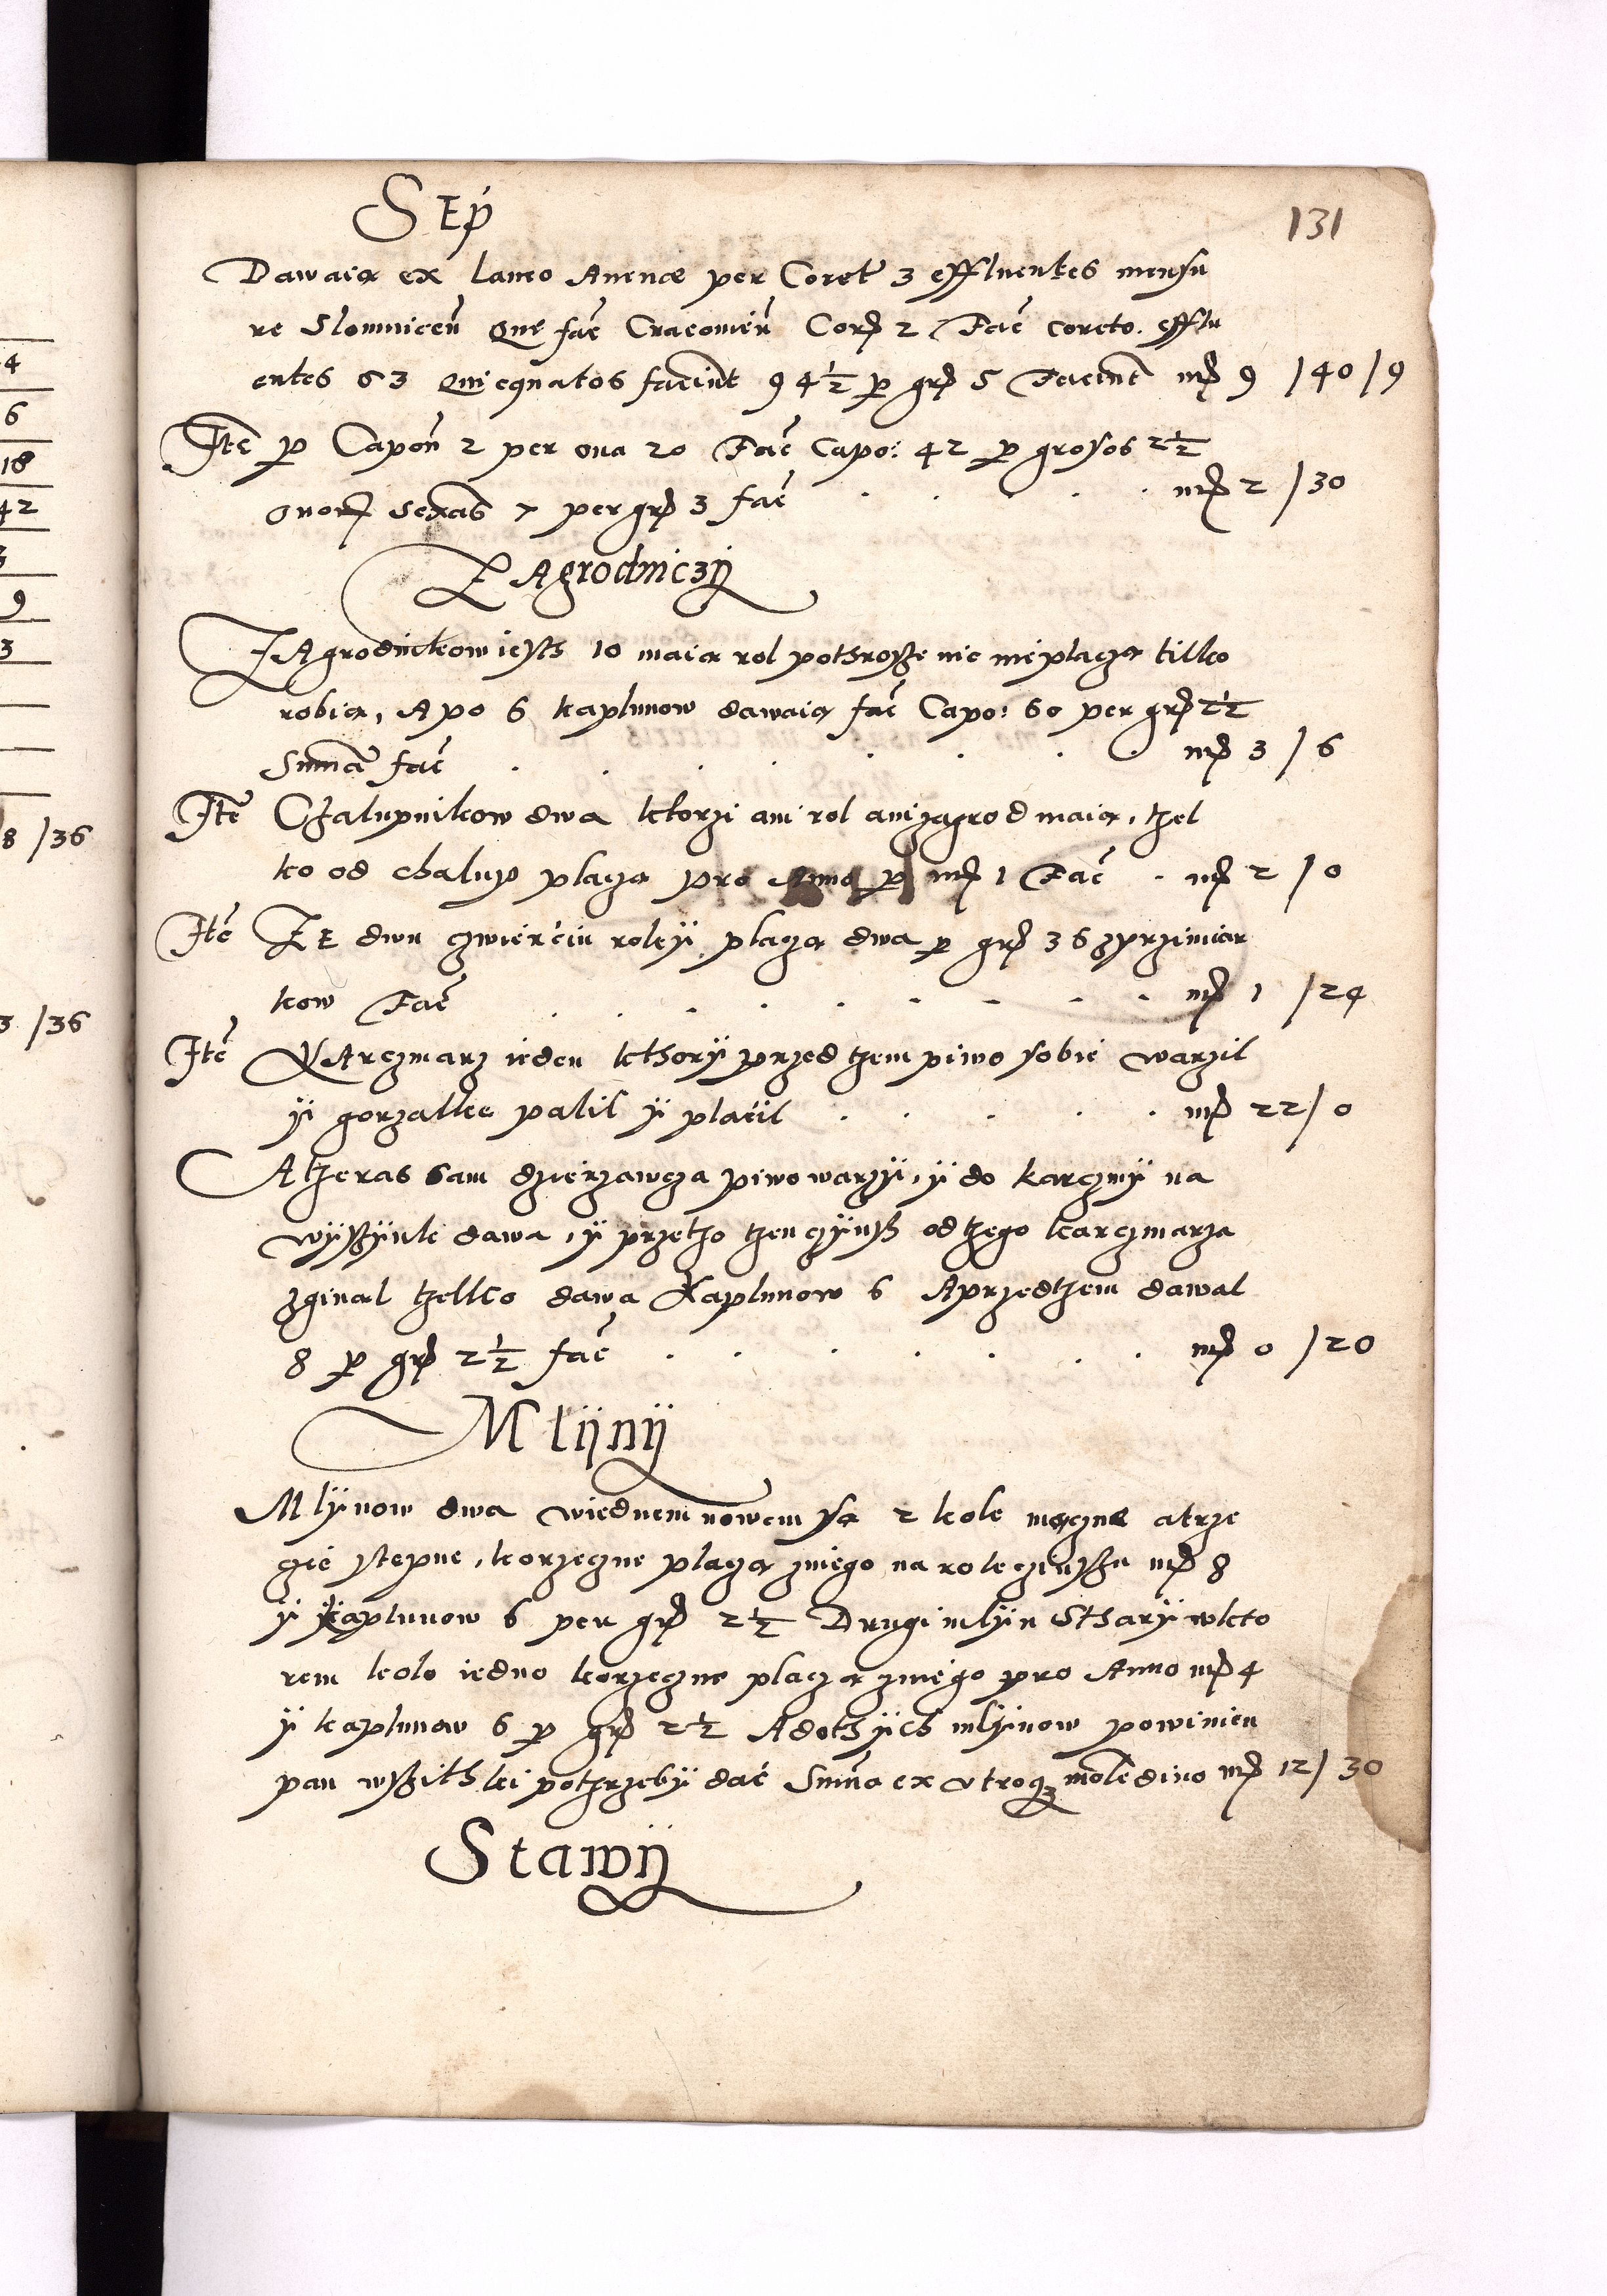 131
SEp
Dawaia ex laneo Auenæ per Coret 3 effluentes mensu
re Slomnicen̄ Que fac̄ Cracouien̄ Cor 2 Fac̄ coreto. efflu
entes 63 Qui equatos faciunt 94½ p gr 5 Faciunt mr 9 /40/9
Itē p Capon̄ 2 per oua 20 Fac̄ Capo: 42 p grosos 2½
Ouor Sexas 7 per gr 3 fac̄ . . . . . mr 2 /30
ZAgrodniczÿ
ZAgrodnikow iesth 10 maia rol pothrosze nic nieplacza tilko
robia, A po 6 kaplunow dawaia fac̄ Capo: 60 per gr 2½
Summa fac̄ . . . . . . . mr 3 /6
Itē Chalupnikow dwa ktorzi ani rol ani zagrod maia, tzel
ko od chalup placza pro Anno p mr 1 Fac̄ . mr 2 /0
Itē ZE dwu czwierciu roleÿ placza dwa p gr 36 zprzimiar
kow Fac̄ . . . . . . . . mr 1 /24
Itē KArczmarz ieden kthorÿ przed tzem piwo sobie warzil
ÿ gorzalke palil ÿ placil . . . . . mr 22/0
A tzeras sam dzierzawcza piwo warzÿ, ÿ do karczmÿ na
wÿszÿnk dawa, ÿ przetzo tzen czÿnsz od tzego karczmarza
zginal tzelko dawa Kaplunow 6 A przedtzem dawal
8 p gr 2½ fac̄ . . . . . . . mr 0 /20
Mlÿnÿ
Mlÿnow dwa wiednem nowem sa 2 kole maczne atrze
czie stepne, korzeczne placza zniego na rok czinszu mr 8
ÿ kaplunow 6 per gr 2½ Drugi mlÿn Stharÿ wkto
rem kolo iedno korzeczne placza zniego pro Anno mr 4
ÿ kaplunow 6 p gr 2½ A do thÿch mlÿnow powinien
pan wszithki potrzebÿ dac Summa ex vtroq molendino mr 12/30
Stawÿ
4
6
18
42
3
9
3
8 /36
3 /36